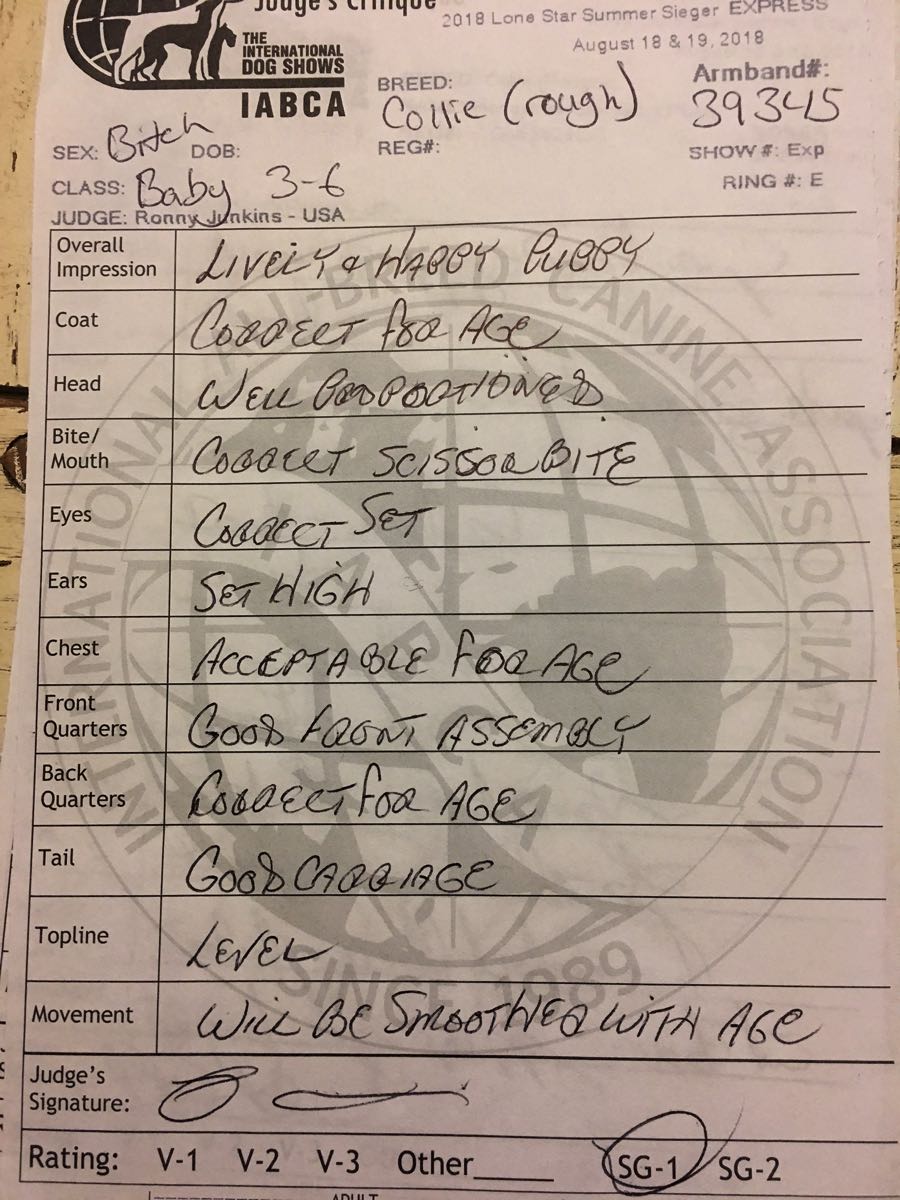 Judge's Critique
2018 Lone Star Summer Sieger EXPRESS
August 18 & 19, 2018
THE
INTERNATIONAL
DOG SHOWS
IABCA
BREED:
Collie (rough)
Armband#:
39345
SEX: Bitch DOB:
REG#:
SHOW #: Exp
CLASS: Baby 3-6
RING #: E
JUDGE: Ronny Junkins - USA
Overall
Impression
LIVELY & HAPPY PUPPY
Coat
CORRECT FOR AGE
Head
WELL PROPORTIONED
Bite/
Mouth
CORRECT SCISSOR BITE
Eyes
CORRECT SET
Ears
SET HIGH
Chest
ACCEPTABLE FOR AGE
Front
Quarters
GOOD FRONT ASSEMBLY
Back
Quarters
CORRECT FOR AGE
Tail
GOOD CARRIAGE
Topline
LEVEL
Movement
WILL BE SMOOTHER WITH AGE
Judge's
Signature:
Rating: V-1 V-2 V-3 Other_____ SG-1 SG-2
ADULT
INTERNATIONAL ALL-BREED CANINE ASSOCIATION
IABCA
SINCE 1989